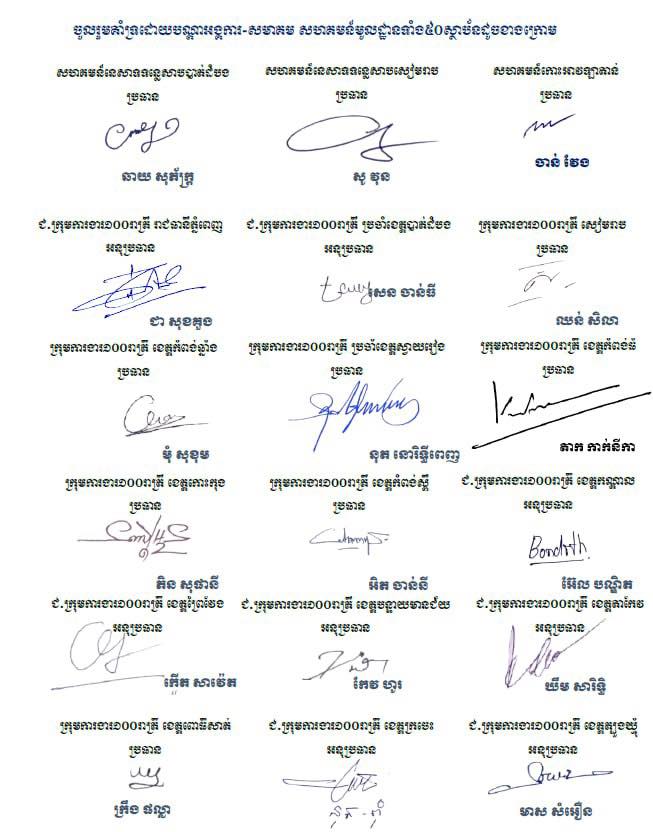 ចូលរួមគាំទ្រដោយបណ្តាអង្គការ-សមាគម សហគមន៍មូលដ្ឋានទាំង៥០ស្ថាប័នដូចខាងក្រោម
សហគមន៍នេសាទទន្លេសាបបាត់ដំបង
ប្រធាន
ឆាយ សុភ័ក្ត្រ
សហគមន៍នេសាទទន្លេសាបសៀមរាប
ប្រធាន
សូ វុន
សហគមន៍កោះអាវឡាតាន់
ប្រធាន
ចាន់ វែង
ជ.ក្រុមការងារ១០០រាត្រី រាជធានីភ្នំពេញ
អនុប្រធាន
ជា សុខគួង
ជ.ក្រុមការងារ១០០រាត្រី ប្រចាំខេត្តបាត់ដំបង
អនុប្រធាន
សេន ចាន់ធី
ក្រុមការងារ១០០រាត្រី សៀមរាប
ប្រធាន
ឈន់ សិលា
ក្រុមការងារ១០០រាត្រី ខេត្តកំពង់ឆ្នាំង
ប្រធាន
មុំ សុខុម
ក្រុមការងារ១០០រាត្រី ប្រចាំខេត្តស្វាយរៀង
ប្រធាន
នុត នោរិទ្ធីពេញ
ក្រុមការងារ១០០រាត្រី ខេត្តកំពង់ធំ
ប្រធាន
តាក កាក់នីកា
ក្រុមការងារ១០០រាត្រី ខេត្តកោះកុង
ប្រធាន
តិន សុផានី
ក្រុមការងារ១០០រាត្រី ខេត្តកំពង់ស្ពឺ
ប្រធាន
អិត ចាន់នី
ជ.ក្រុមការងារ១០០រាត្រី ខេត្តកណ្តាល
អនុប្រធាន
Bondith
អ៊ែល បណ្ឌិត
ជ.ក្រុមការងារ១០០រាត្រី ខេត្តព្រៃវែង
អនុប្រធាន
កើត សាវ៉េត
ជ.ក្រុមការងារ១០០រាត្រី ខេត្តបន្ទាយមានជ័យ
អនុប្រធាន
កែវ ហួរ
ជ.ក្រុមការងារ១០០រាត្រី ខេត្តតាកែវ
អនុប្រធាន
ឃឹម សារិទ្ធិ
ក្រុមការងារ១០០រាត្រី ខេត្តពោធិ៍សាត់
ប្រធាន
ក្រឹង ផល្លា
ជ.ក្រុមការងារ១០០រាត្រី ខេត្តក្រចេះ
អនុប្រធាន
ជ.ក្រុមការងារ១០០រាត្រី ខេត្តត្បូងឃ្មុំ
អនុប្រធាន
មាស សំអឿន